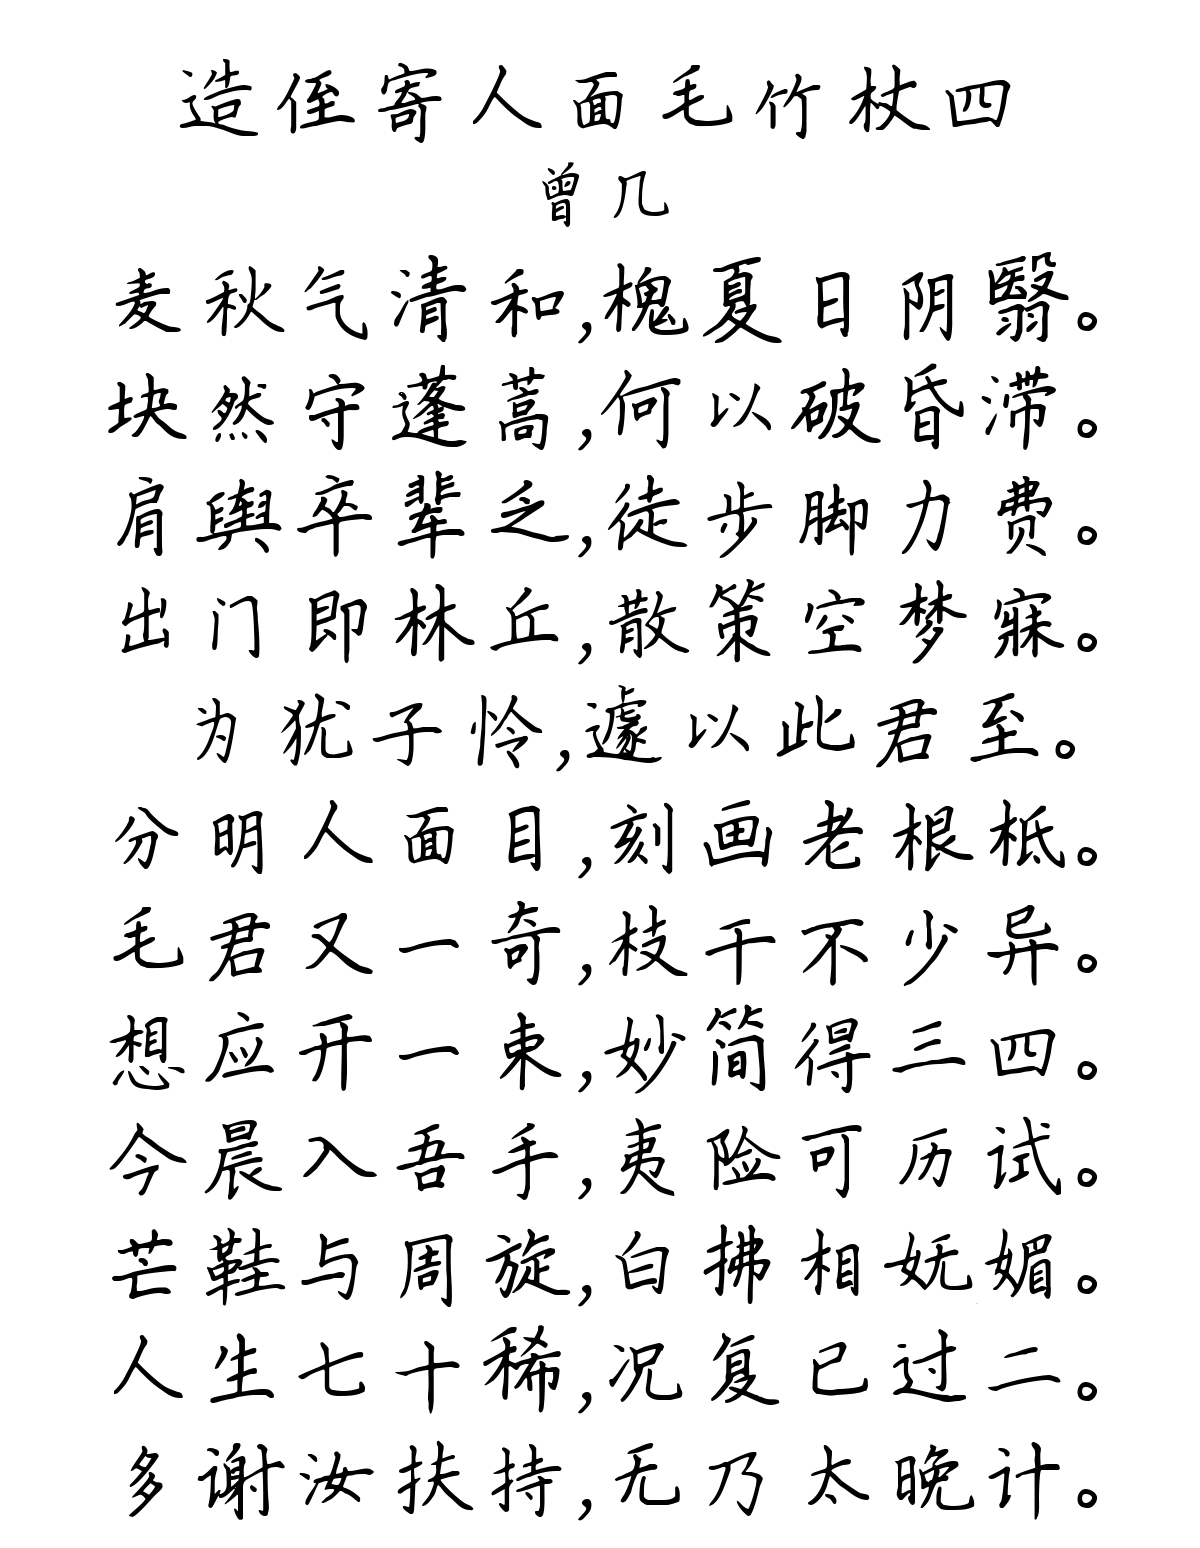 造侄寄人面毛竹杖四
曾几
麦秋气清和,槐夏日阴翳。
块然守蓬蒿,何以破昏滞。
肩舆卒辈乏,徒步脚力费。
出门即林丘,散策空梦寐。
为犹子怜,遽以此君至。
分明人面目,刻画老根柢。
毛君又一奇,枝干不少异。
想应开一束,妙简得三四。
今晨入吾手,夷险可历试。
芒鞋与周旋,白拂相妩媚。
人生七十稀,况复已过二。
多谢汝扶持,无乃太晚计。